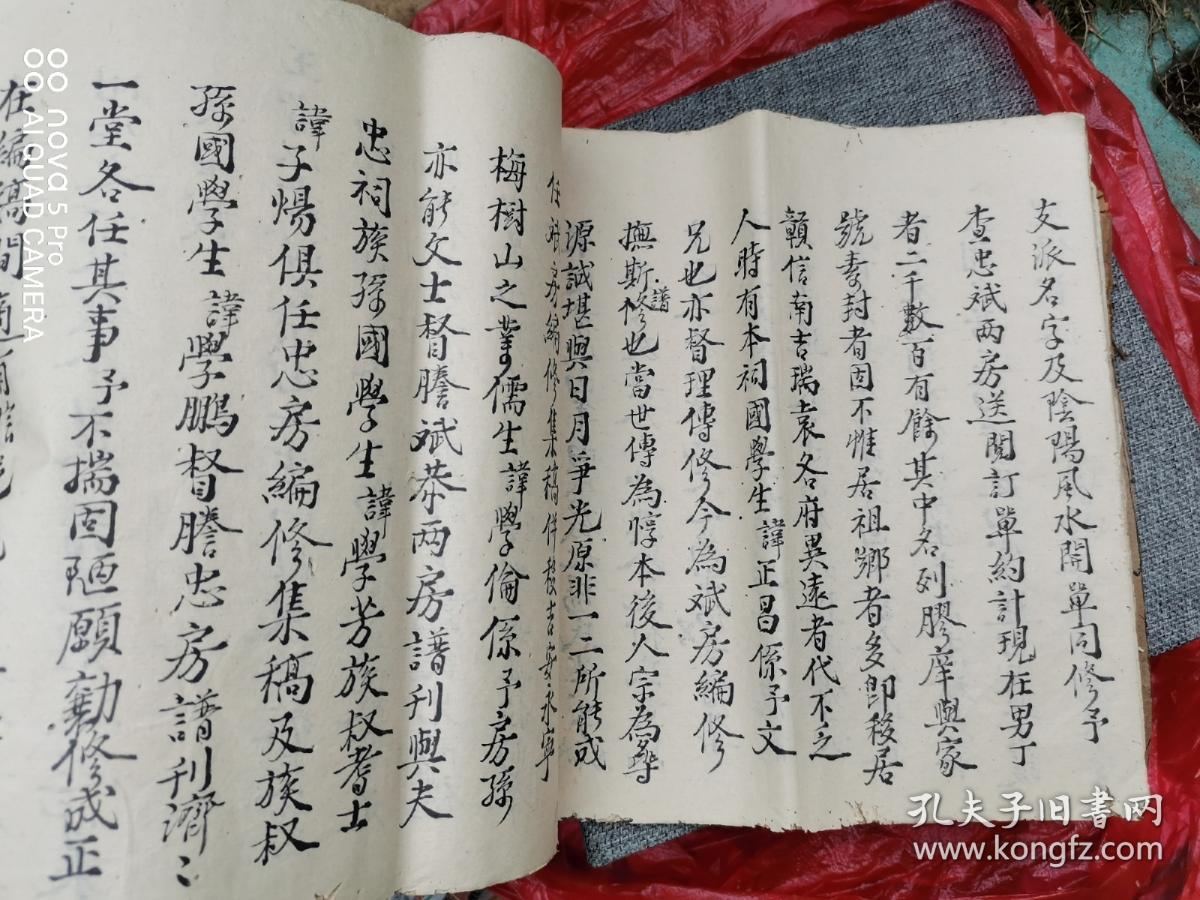 支派名字及陰陽風水開單同修予
查忠斌两房送閱訂單約計現在男丁
者二千數百有餘其中名列膠庠與家
號素封者固不惟居祖鄉者多即移居
贛信南吉瑞袁各府異遠者代不乏
人時有本祠國學生諱正昌係予文
兄也亦督理傳修今為斌房編修
撫斯譜修也當世傳為惇本後人宗為尋
源誠堪與日月爭光原非一二所能成
房編修集稿併校吉安永寧
梅樹山之業儒生諱學倫係予房孫
亦能文士督謄斌恭两房譜刊與夫
忠祠族孫國學生諱學芳族叔耆士
諱子煬俱任忠房編修集稿及族叔
孫國學生諱學鵬督謄忠房譜刊濟二
一堂各任其事予不揣固陋願勷修成正
在編稿間
nova 5 Pro
AI QUAD CAMERA
孔夫子旧书网
www.kongfz.com